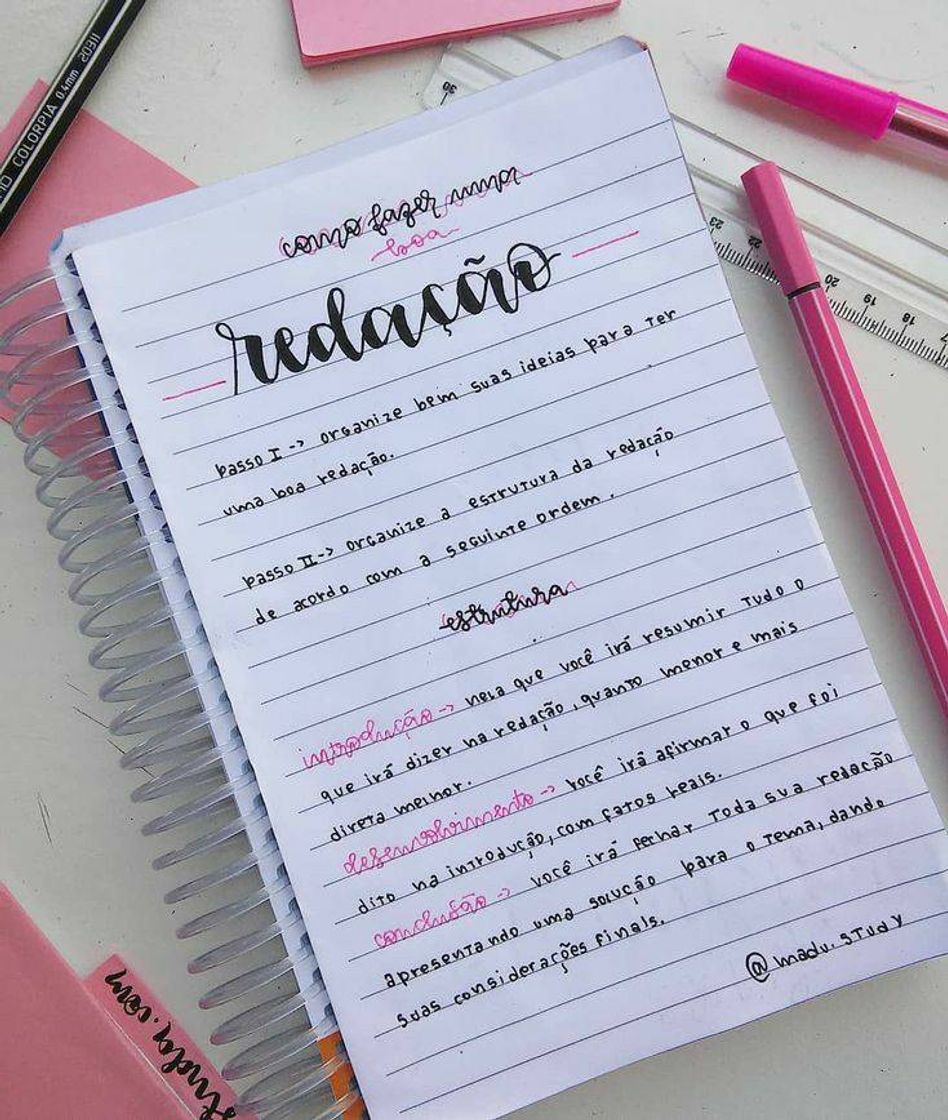 COLORPIA 0.4mm 20311
como fazer uma
boa
redação
passo I -> organize bem suas ideias para ter
uma boa redação.
passo II -> organize a estrutura da redação
de acordo com a seguinte ordem.
estrutura
introdução -> nela que você irá resumir tudo o
que irá dizer na redação, quanto menor e mais
direta melhor.
desenvolvimento -> você irá afirmar o que foi
dito na introdução, com fatos reais.
conclusão -> você irá fechar toda sua redação
apresentando uma solução para o tema, dando
suas considerações finais.
@madu.study
30
23
22
20
19
18
17